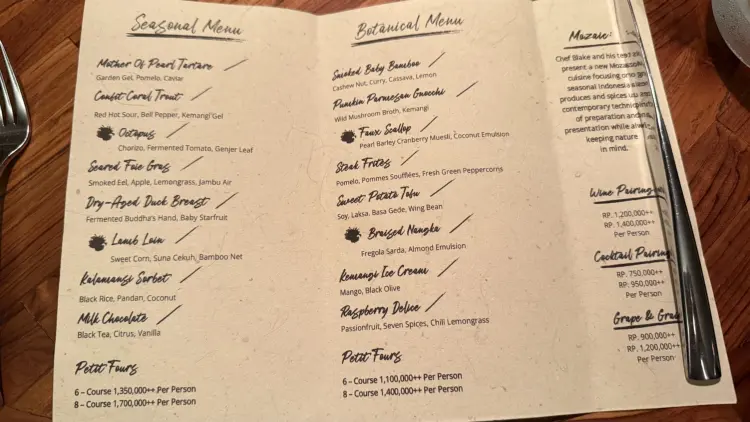 Seasonal Menu
Mother Of Pearl Tartare
Garden Gel, Pomelo, Caviar
Confit Coral Trout
Red Hot Sour, Bell Pepper, Kemangi Gel
Octopus
Chorizo, Fermented Tomato, Genjer Leaf
Seared Foie Gras
Smoked Eel, Apple, Lemongrass, Jambu Air
Dry-Aged Duck Breast
Fermented Buddha's Hand, Baby Starfruit
Lamb Loin
Sweet Corn, Suna Cekuh, Bamboo Net
Kalamansi Sorbet
Black Rice, Pandan, Coconut
Milk Chocolate
Black Tea, Citrus, Vanilla
Petit Fours
6 – Course 1,350,000++ Per Person
8 – Course 1,700,000++ Per Person
Botanical Menu
Smoked Baby Bamboo
Cashew Nut, Curry, Cassava, Lemon
Pumkin Parmesan Gnocchi
Wild Mushroom Broth, Kemangi
Faux Scallop
Pearl Barley Cranberry Muesli, Coconut Emulsion
Steak Frites
Pomelo, Pommes Soufflées, Fresh Green Peppercorns
Sweet Potato Tofu
Soy, Laksa, Basa Gede, Wing Bean
Braised Nangka
Fregola Sarda, Almond Emulsion
Kemangi Ice Cream
Mango, Black Olive
Raspberry Delice
Passionfruit, Seven Spices, Chili Lemongrass
Petit Fours
6 – Course 1,100,000++ Per Person
8 – Course 1,400,000++ Per Person
Mozaic
Chef Blake and his
present a new
cuisine focusing on
seasonal Indonesia
produces and spices
contemporary
of preparation and
presentation while
keeping nature
in mind.
Wine Pairing
RP. 1,200,000++
RP. 1,400,000++
Per Person
Cocktail Pairing
RP. 750,000++
RP. 950,000++
Per Person
Grape &
RP. 900,000++
RP. 1,200,000++
Per Person